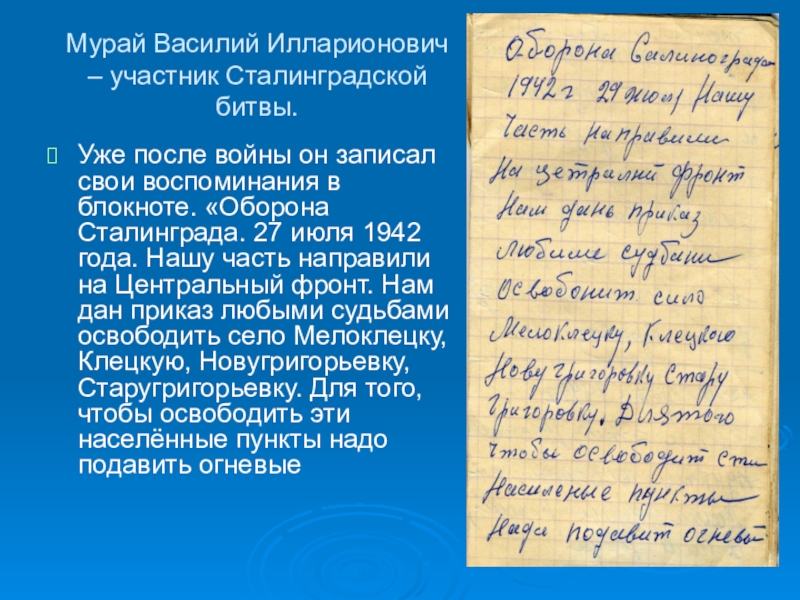 Мурай Василий Илларионович
– участник Сталинградской
битвы.
Уже после войны он записал
свои воспоминания в
блокноте. «Оборона
Сталинграда. 27 июля 1942
года. Нашу часть направили
на Центральный фронт. Нам
дан приказ любыми судьбами
освободить село Мелоклецку,
Клецкую, Новугригорьевку,
Старугригорьевку. Для того,
чтобы освободить эти
населённые пункты надо
подавить огневые
Оборона Салинограда
1942 г 29 июл Нашу
Часть направили
На цетралнй фронт
Нам дань приказ
любиме судбами
Освобонит сило
Мелоклецку, Клецкою
Нову григоровку Стару
Григоровку. Длятого
Чтобы освободит сти
Насиленые пункты
Нада подавит огневы